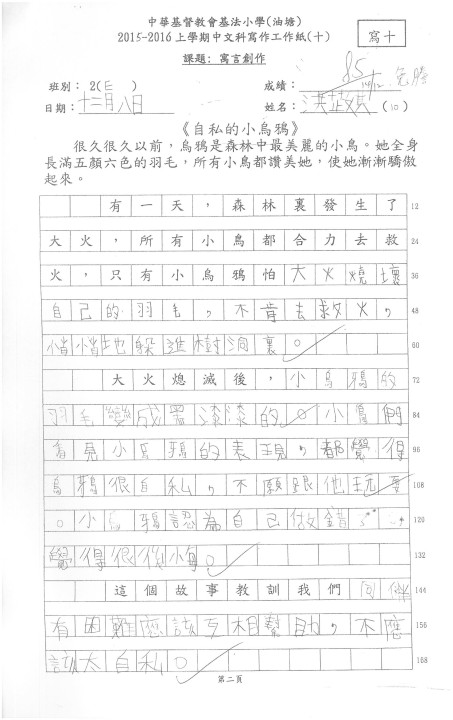 中華基督教會基法小學(油塘)
2015-2016上學期中文科寫作工作紙(十)
寫十
課題：寓言創作
班別：2(E) 成績：85
日期：十二月八日 姓名：洪 (10)
《自私的小烏鴉》
很久很久以前，烏鴉是森林中最美麗的小鳥。她全身
長滿五顏六色的羽毛，所有小鳥都讚美她，使她漸漸驕傲
起來。
有一天，森林裏發生了 12
大火，所有小鳥都合力去救 24
火，只有小烏鴉怕大火燒壞 36
自己的羽毛，不肯去救火， 48
悄悄地躲進樹洞裏。 60
大火熄滅後，小烏鴉的 72
羽毛變成黑漆漆的。小鳥們 84
看見小烏鴉的表現，都覺得 96
烏鴉很自私，不願跟他玩耍 108
。小烏鴉認為自己做錯 120
覺得很後悔。 132
這個故事教訓我們 144
有困難應該互相幫助，不應 156
該太自私。 168
第二頁